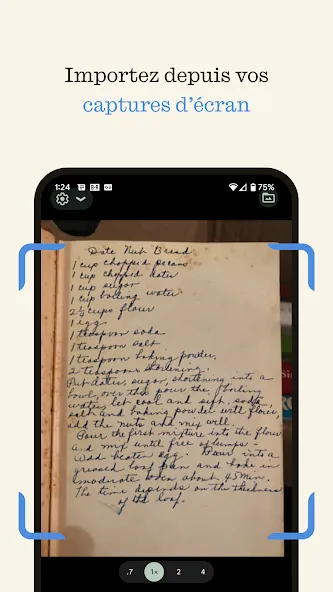 Importez depuis vos
captures d'écran
1:24
75%
Date Nut Bread
1 cup chopped pecans
1 cup chopped dates
1 cup sugar
1 cup boiling water
2½ cups flour
1 egg
1 teaspoon soda
1 teaspoon salt
1 teaspoon baking powder,
2 teaspoons shortening.
Put dates, sugar, shortening into a
bowl, over this pour the boiling
water, let cool and sift, soda,
salt and baking powder with flour,
add the nuts and mix well.
Pour the first mixture into the flour
and mix until free of lumps -
Add beaten egg. Pour into a
greased loaf pan and bake in
moderate oven about 45 min.
The time depends on the thickness
of the loaf.
.7
1×
2
4